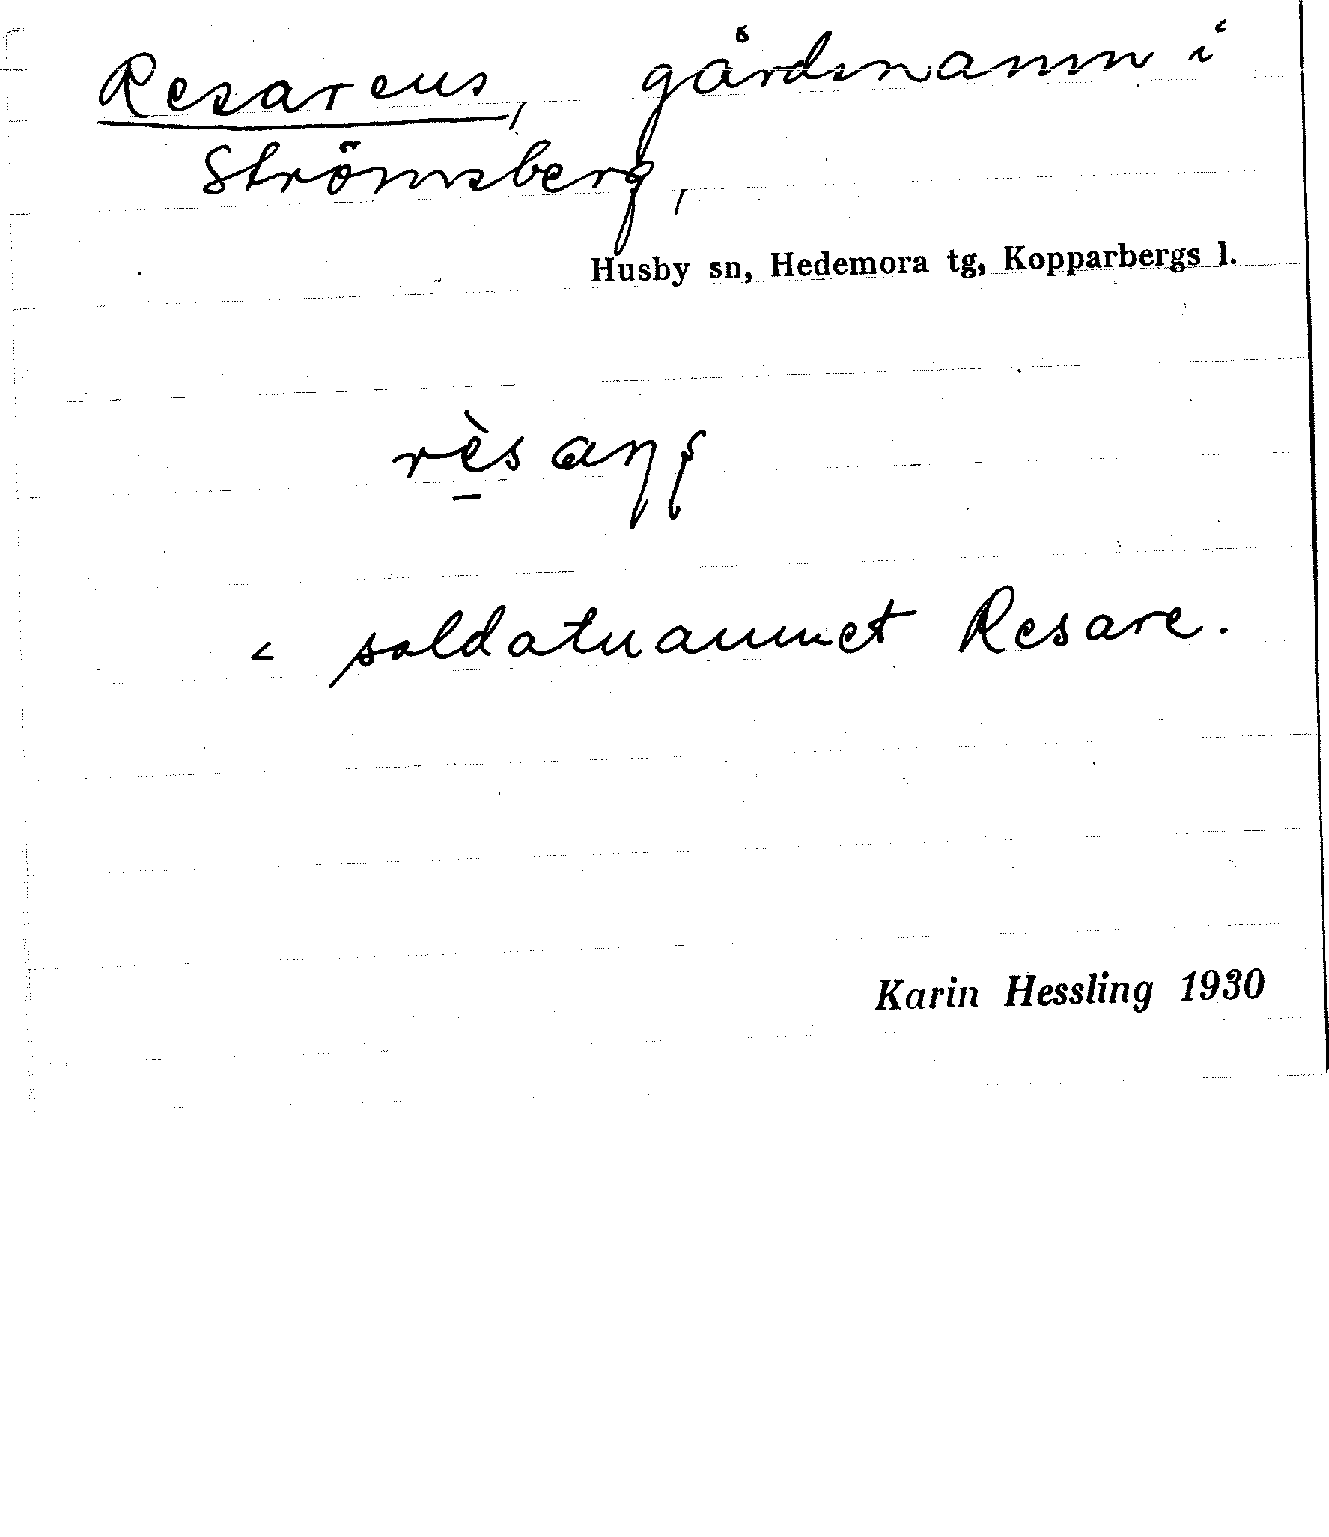 Resarens, gårdsnamn i
Strömsberg,
Husby sn, Hedemora tg, Kopparbergs l.
< soldatnamnet Resare.
Karin Hessling 1930